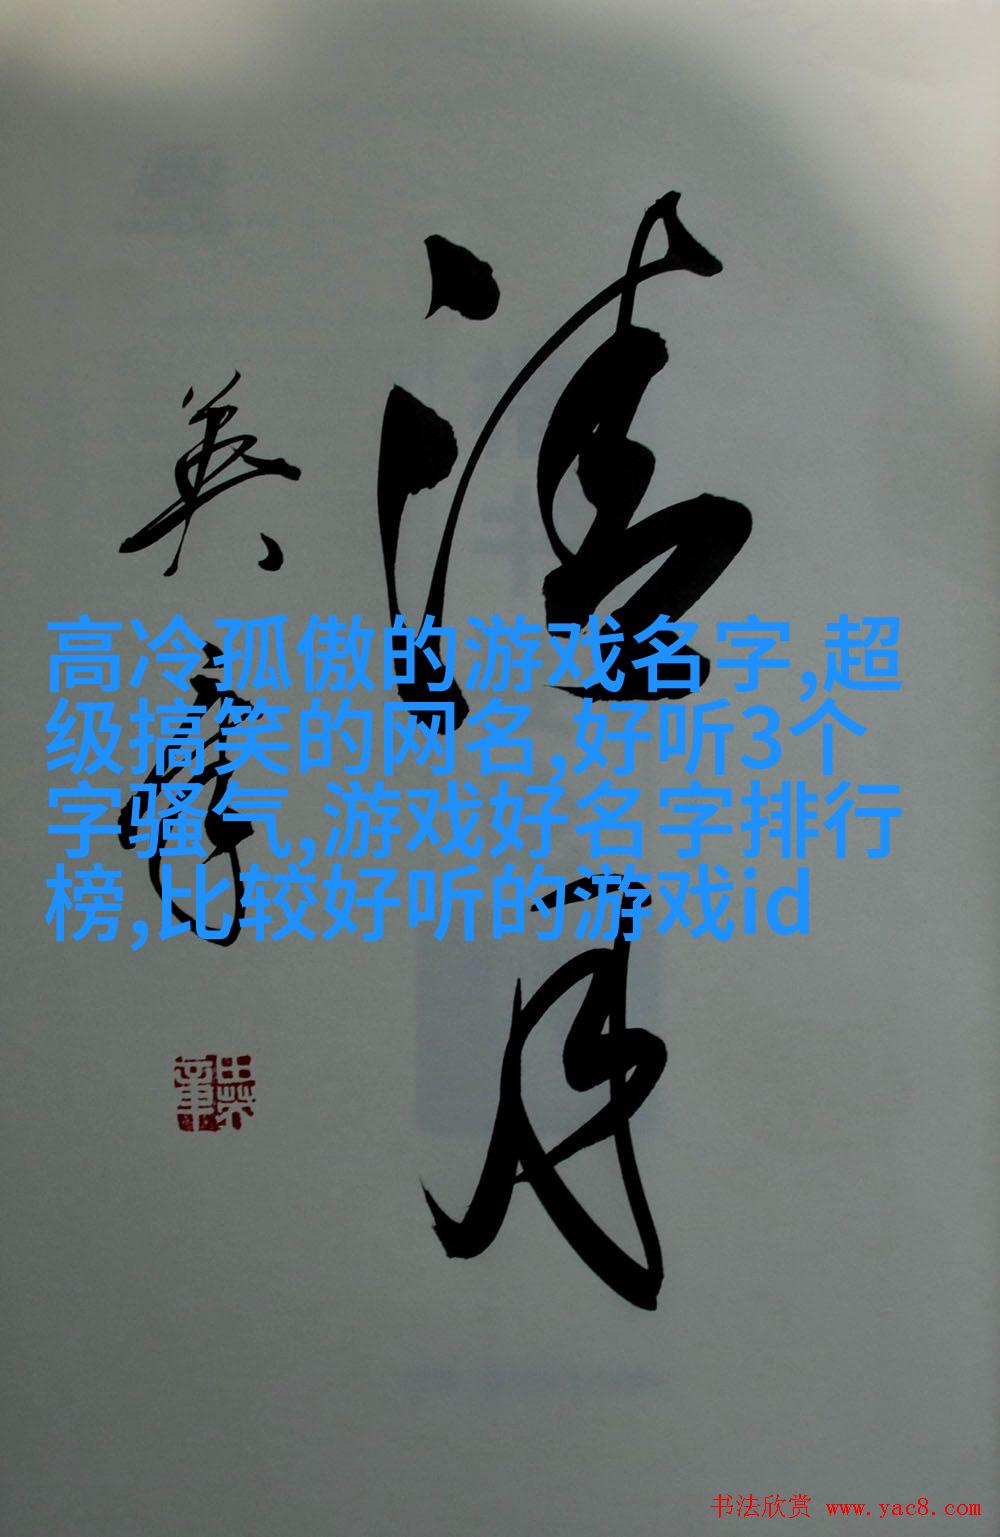 清月
英章
高冷孤傲的游戏名字,超
级搞笑的网名,好听3个
字骚气,游戏好名字排行
榜,比较好听的游戏id
书法欣赏 www.yac8.com